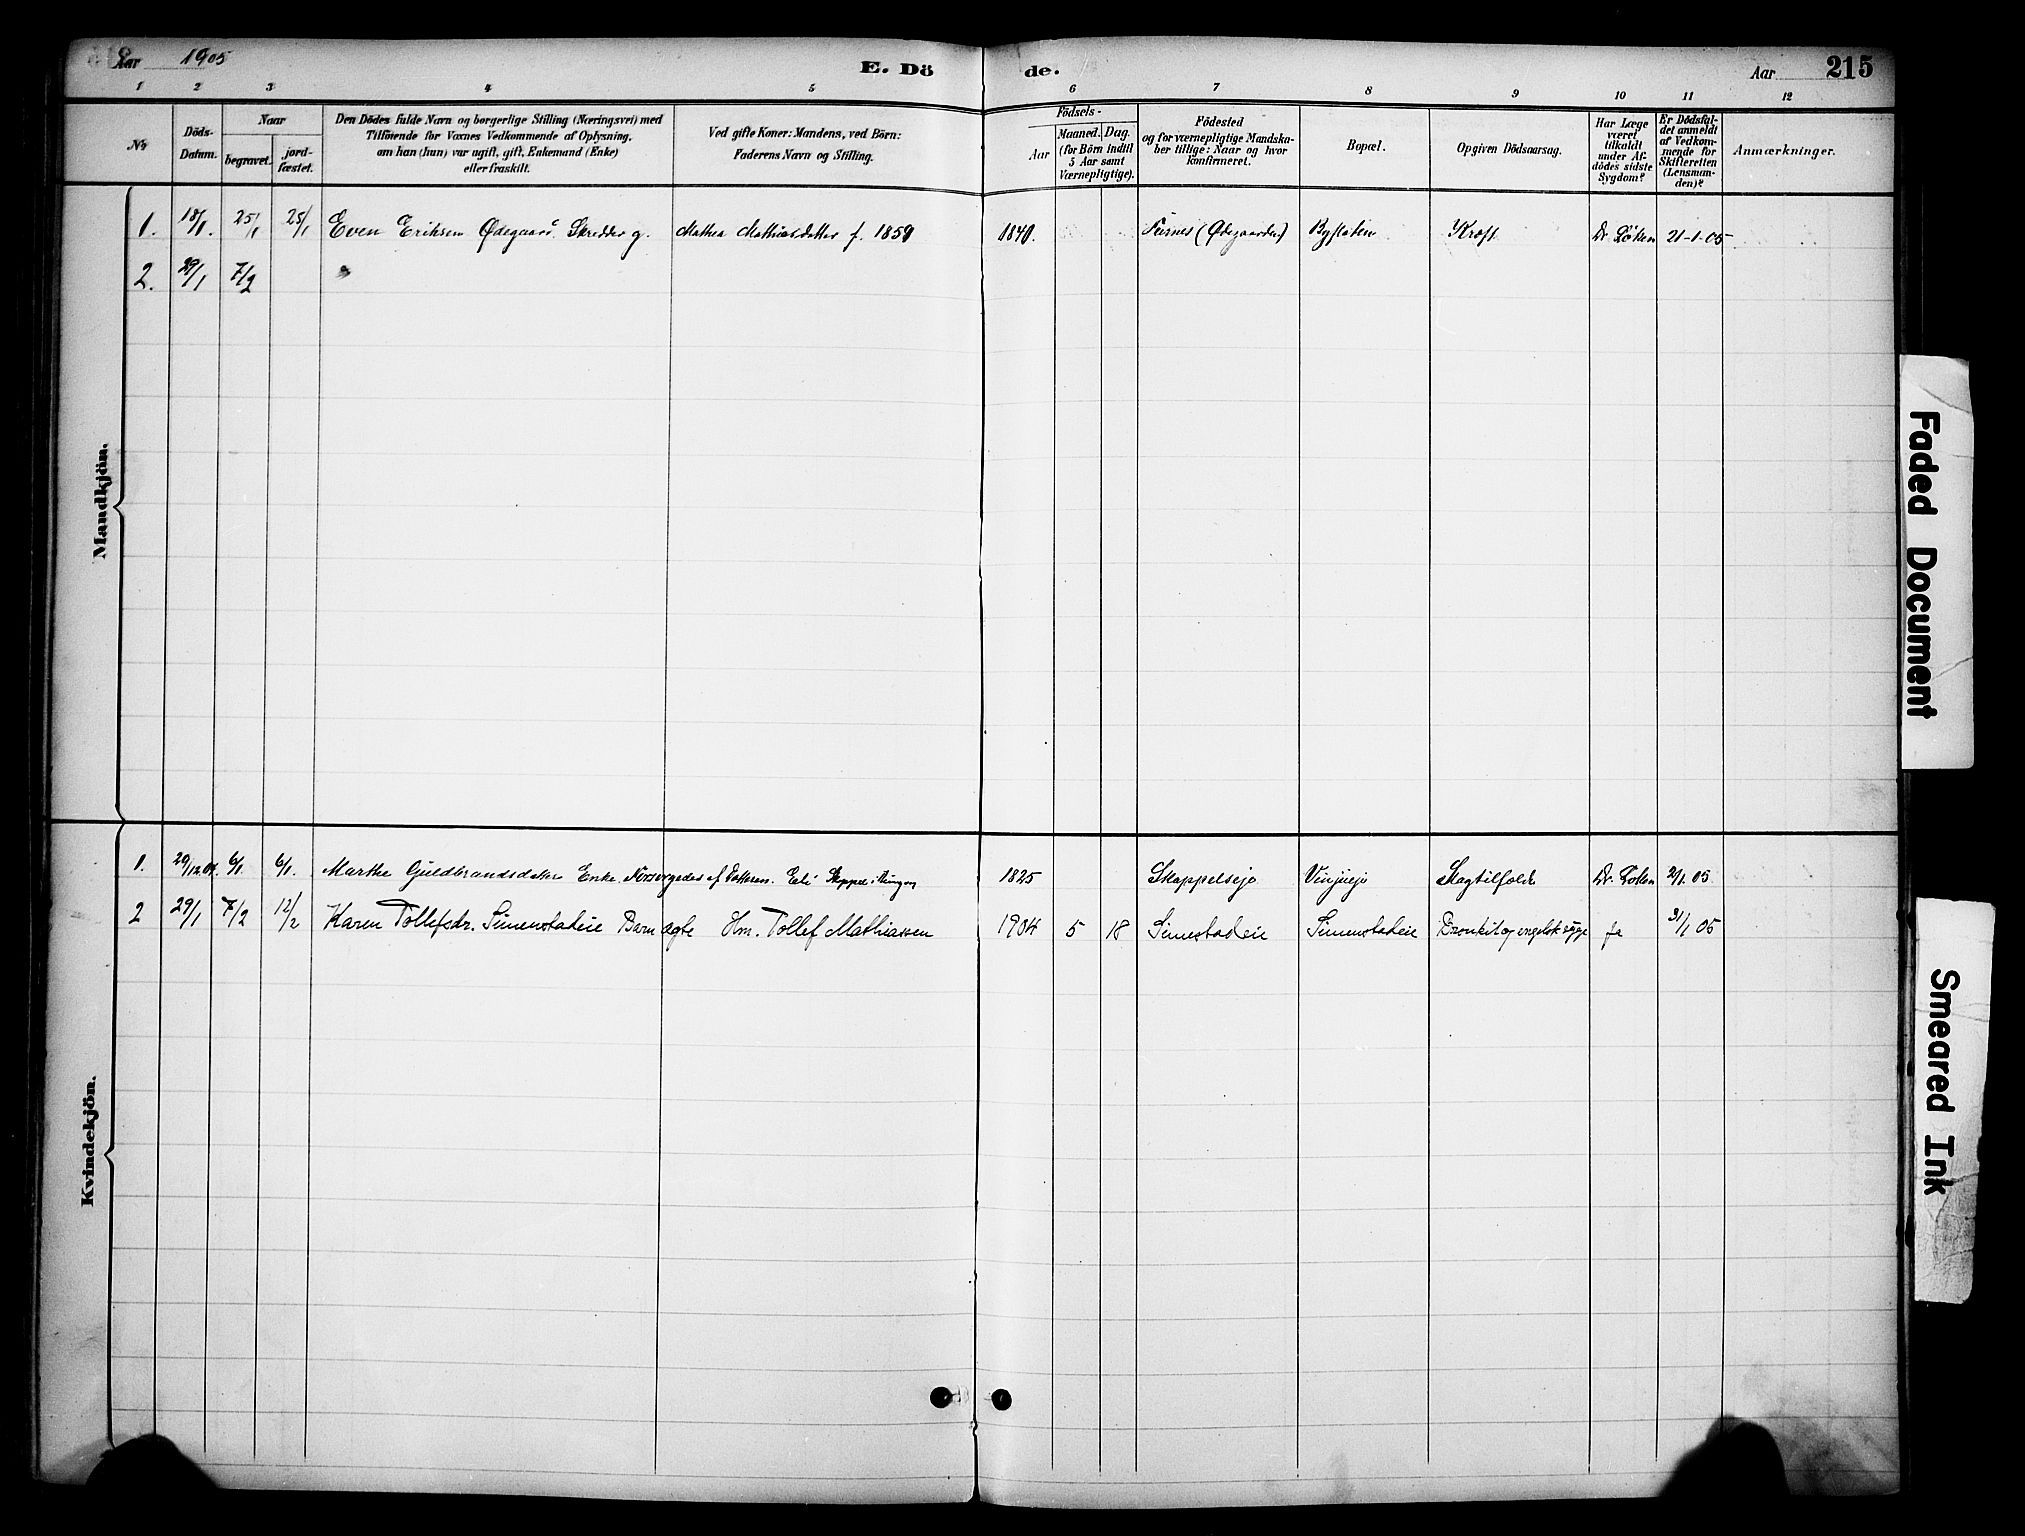 Aar 1905
E. Dö de.
Aar 215
1 2 3 4 5 6 7 8 9 10 11 12
№
Döds-Datum.
Naar
begravet.
jord-fæstet.
Den Dödes fulde Navn og borgerlige Stilling (Næringsvei) med
Tilföiende for Voxnes Vedkommende af Oplysning,
om han (hun) var ugift, gift, Enkemand (Enke)
eller fraskilt.
Ved gifte Koner: Mandens, ved Börn:
Faderens Navn og Stilling.
Födsels-
Aar
Maaned. Dag.
(for Börn indtil
5 Aar samt
Værnepligtige).
Födested
og for værnepligtige Mandska-
ber tillige: Naar og hvor
konfirmeret.
Bopæl.
Opgiven Dödsaarsag.
Har Læge
været
tilkaldt
under Af-
dödes sidste
Sygdom?
Er Dödsfal-
det anmeldt
af Vedkom-
mende for
Skifteretten
(Lensman-
den)?
Anmærkninger.
Mandkjön.
1. 18/1. 25/1 25/1 Even Eriksen Ødegaard Skredder g. Mathea Mathiasdatter f. 1859 1840. Furnes (Ødegaarden) Byflaten Kræft Dr. Löken 21-1-05
2. 29/1 7/2
Kvindekjön.
1. 29/12.04. 6/1. 6/1. Marthe Guldbrandsdatter Enke. Forsørgedes af Datteren. Eli 1825 Skappelsejo Vinjuejo Slagtilfælde Dr. Loken 2/1.05
2 29/1 7/2 12/2 Karen Tollefsdr. Simenstadeie Barn ægte Hm. Tollef Mathiassen 1904 5 18 Simestadeie Simenstadeie Bronkit og engelsk syge ja 31/1 05
Faded Document
Smeared Ink